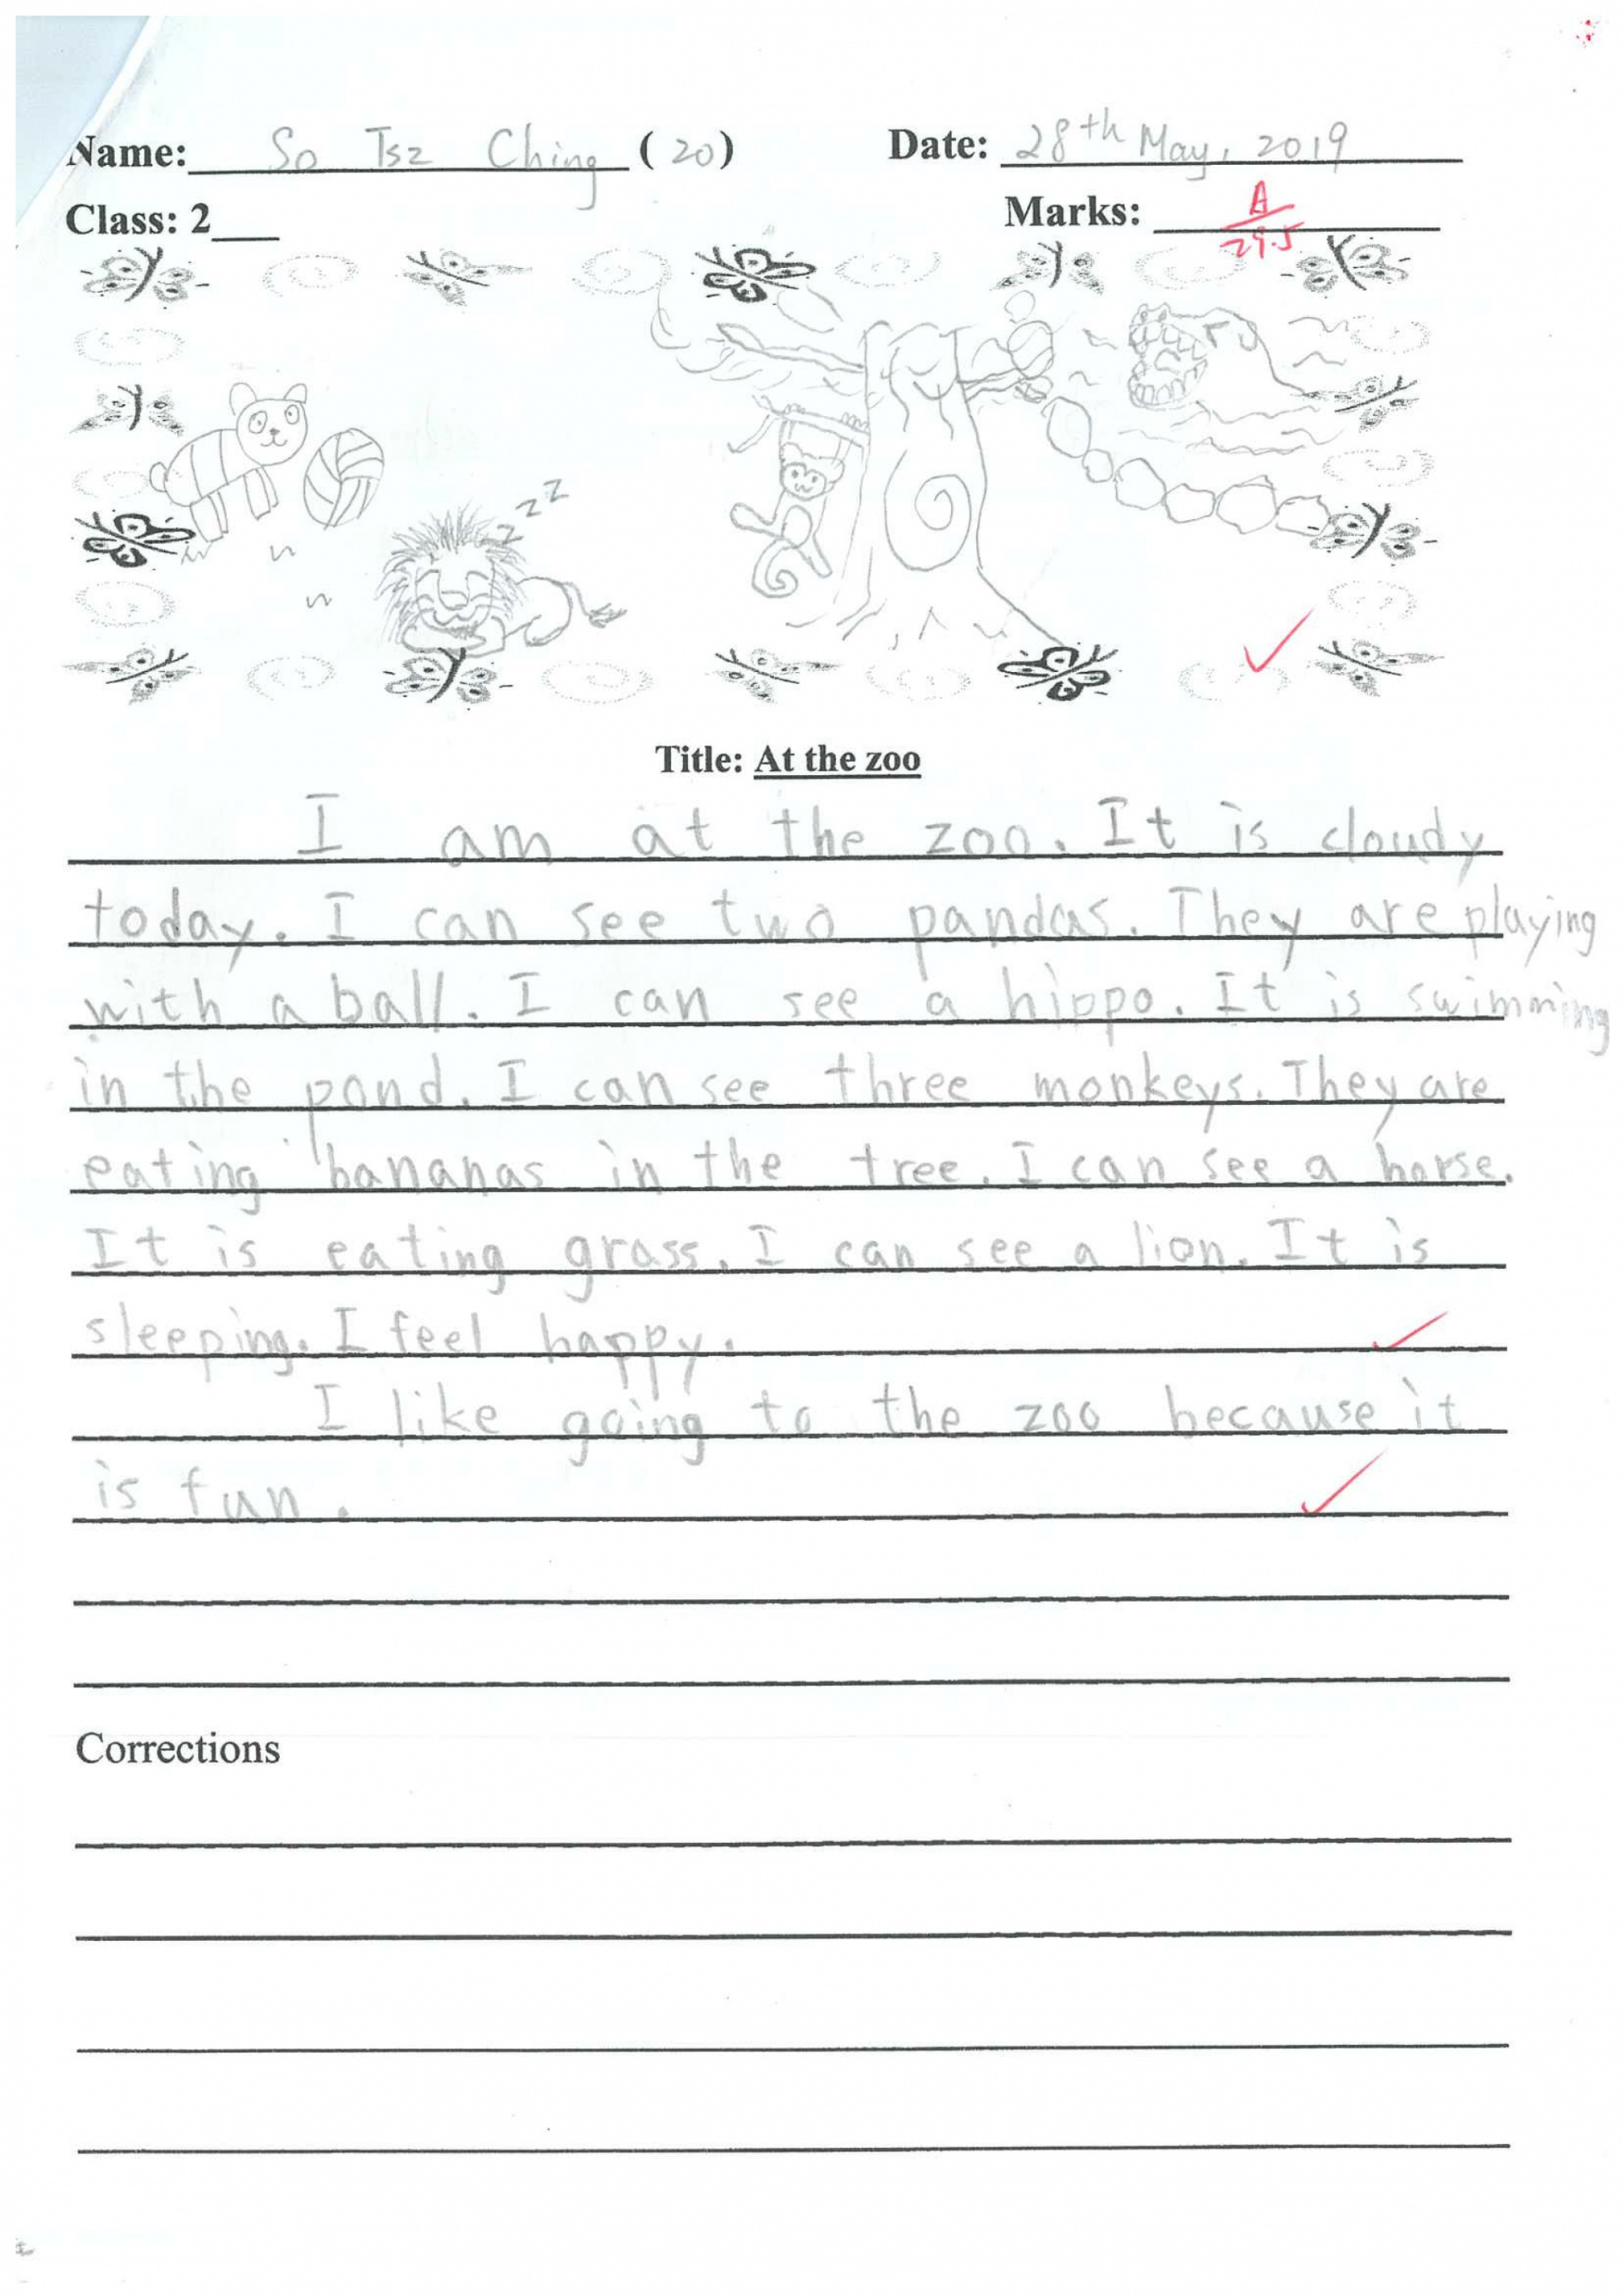 Name: So Tsz Ching ( 20 )
Date: 28th May, 2019
Class: 2___
Marks: A
29.5
z z z
Title: At the zoo
I am at the zoo. It is cloudy
today. I can see two pandas. They are playing
with a ball. I can see a hippo. It is swimming
in the pond. I can see three monkeys. They are
eating bananas in the tree. I can see a horse.
It is eating grass. I can see a lion. It is
sleeping. I feel happy.
I like going to the zoo because it
is fun.
Corrections